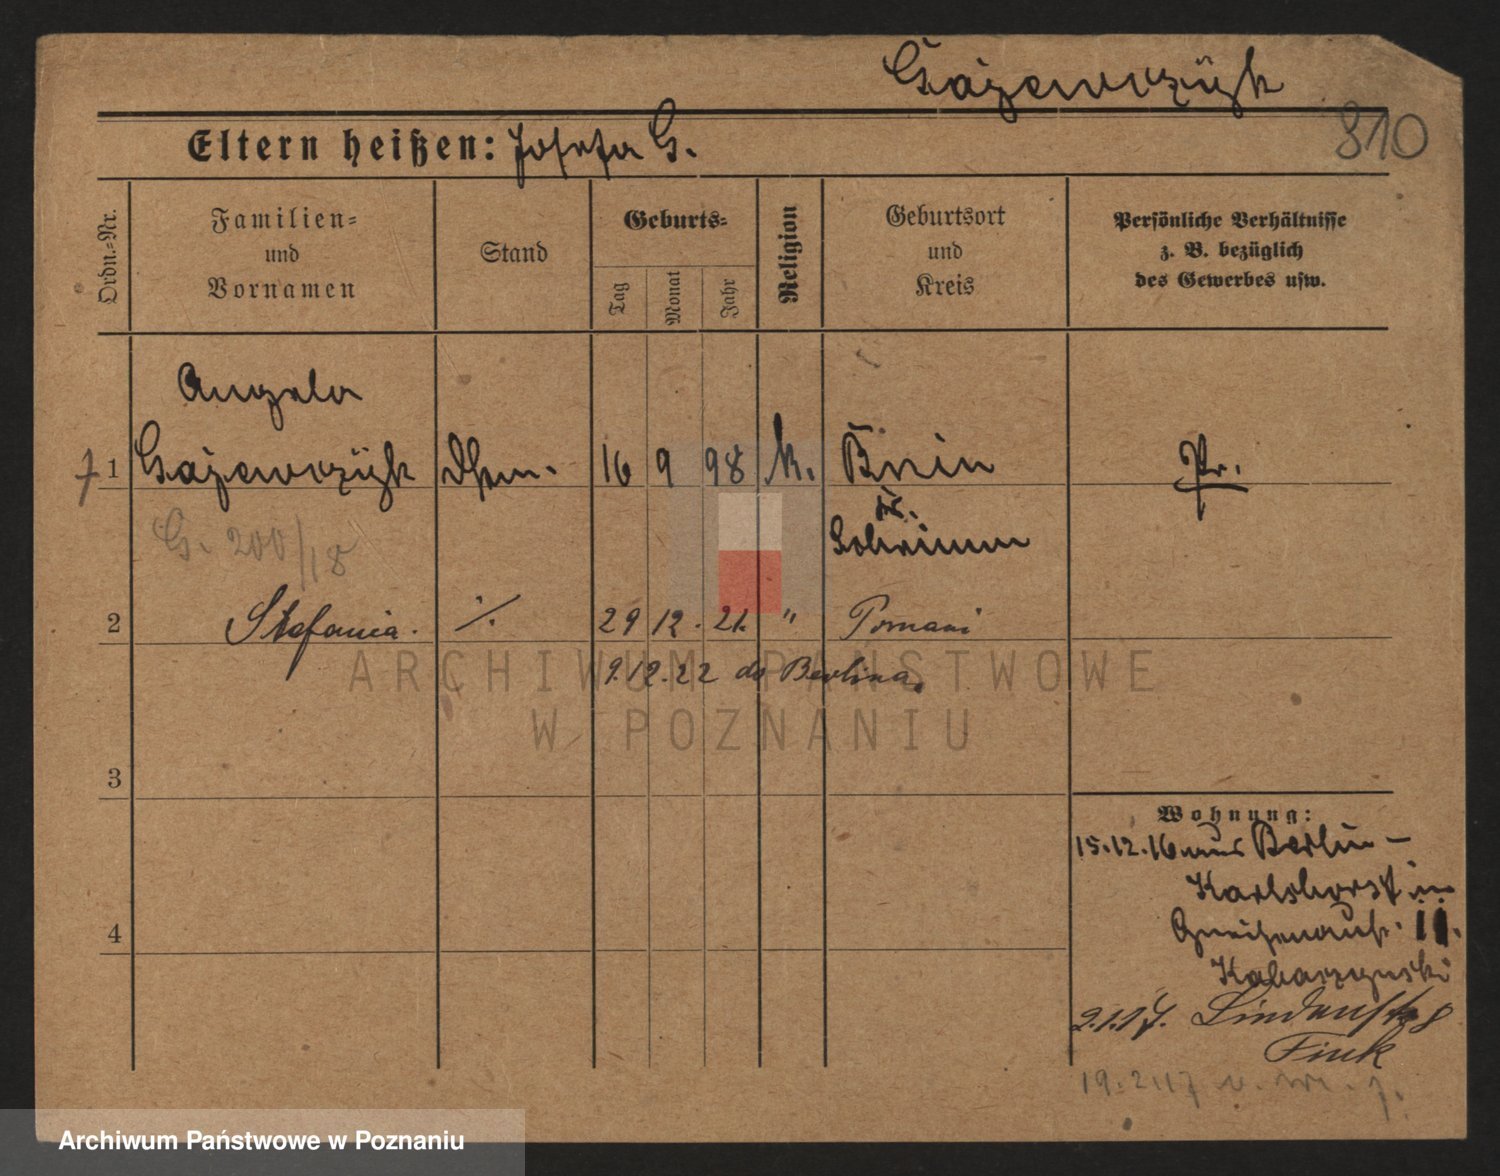 Gajewczyk
810
Eltern heißen: Josefa G.
Ordn.-Nr.
Familien-
und
Vornamen
Stand
Geburts-
Tag
Monat
Jahr
Religion
Geburtsort
und
Kreis
Persönliche Verhältnisse
z. B. bezüglich
des Gewerbes usw.
Angela
1 Gajewczyk 16 9 98 k. Bnin Pr.
Kr.
Schrimm
G. 200/18
2 Stefania. ·/. 29 12. 21. " Poznani
9.12.22 do Berlina.
ARCHIWUM PAŃSTWOWE
W POZNANIU
3
4
Wohnung:
15.12.16 aus Berlin-
Karlshorst in
Gneisenaustr. 11.
Kaharzynski
2.1.17. Lindenstr 8
Fink
19.2.17
Archiwum Państwowe w Poznaniu